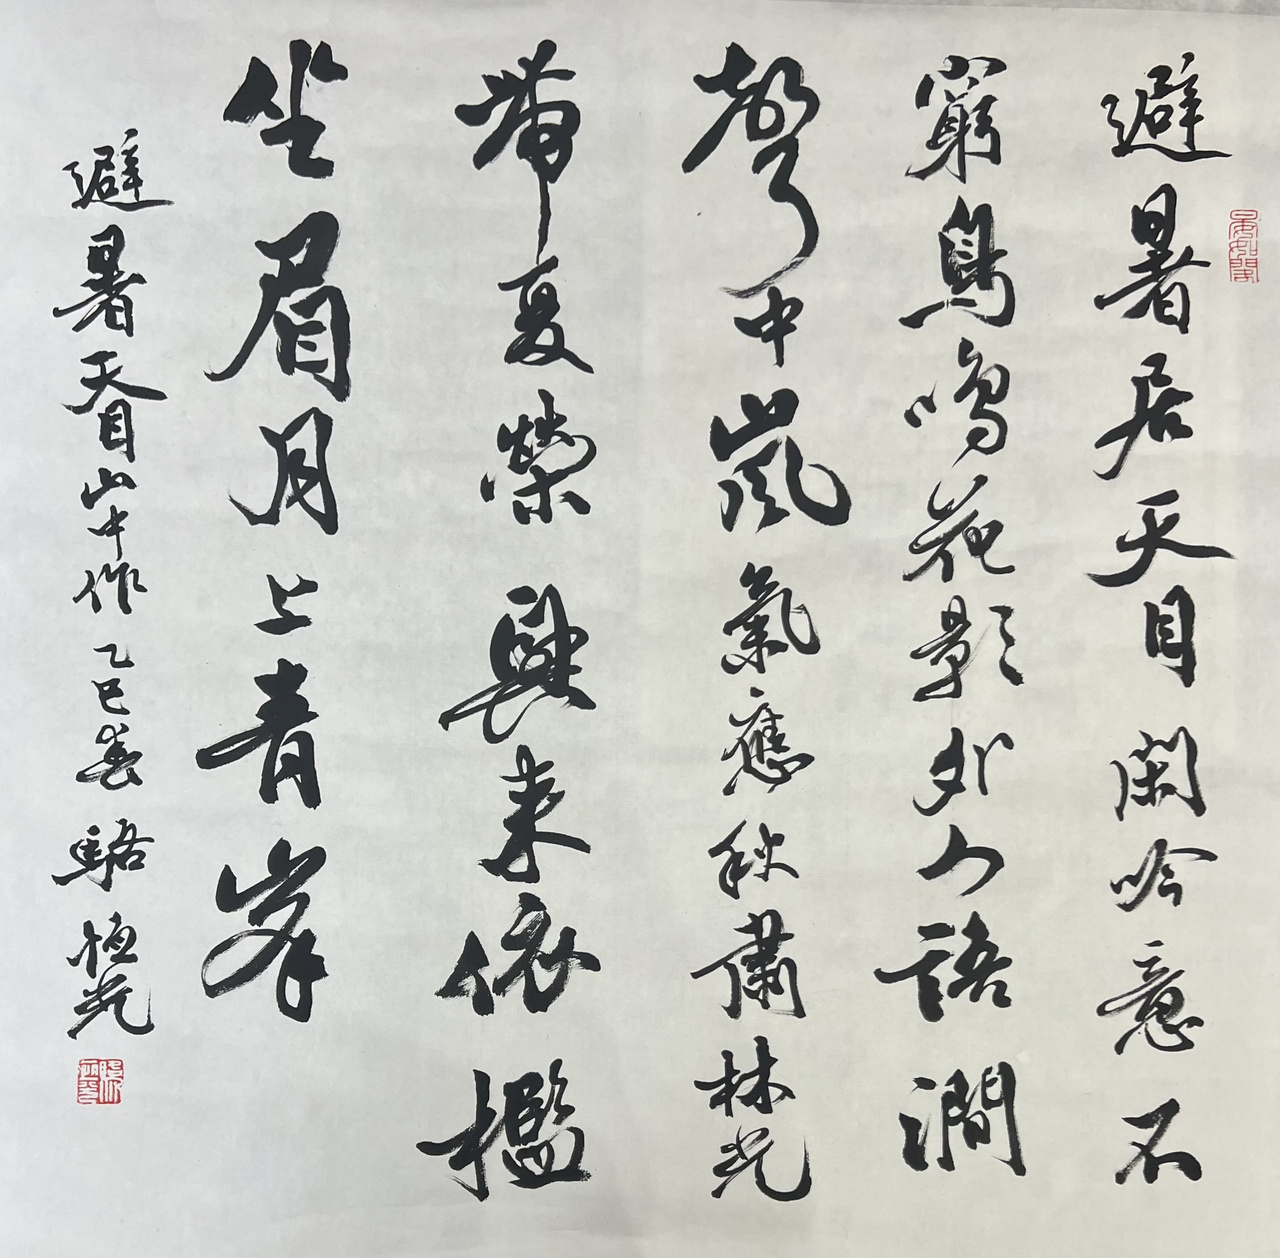 避暑居天目閑吟意不
窮鳥鳴花影外人語澗
聲中嵐氣應秋肅林光
帶夏榮興來依檻
坐眉月上青峯
避暑天目山中作乙巳春駱恒光